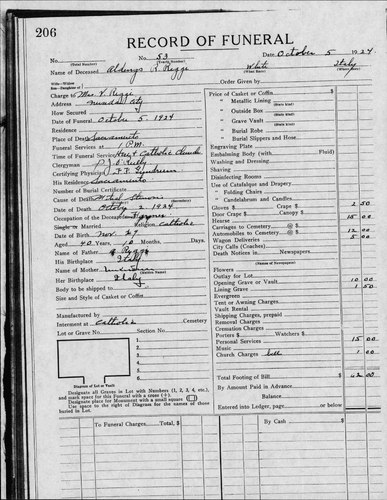 206
RECORD OF FUNERAL
No. 53 Date October 5 1924
(Total Number) (Yearly Number)
Name of Deceased R. Reggi White Italy
(What Race) (Where Born)
Wife-Widow
Son-Daughter of
Charge to Mrs. V. Reggi
Address Nevada City
How Secured
Date of Funeral October 5, 1924
Residence
Place of Death Sacramento
Funeral Services at 1 P.M.
Time of Funeral Service Catholic Church
Clergyman
Certifying Physician
His Residence Sacramento
Number of Burial Certificate
Cause of Death
Date of Death 2, 1924
Occupation of the Deceased
Single or Married Religion Catholic
Date of Birth Nov. 27
Aged 40 Years, 10 Months, Days
Name of Father Reggi
His Birthplace Italy
Name of Mother
(Maiden Name)
Her Birthplace Italy
Body to be shipped to
Size and Style of Casket or Coffin
Manufactured by
Interment at Catholic Cemetery
Lot or Grave No. Section No.
1.
2.
3.
4.
5.
6.
Diagram of Lot or Vault
Designate all Graves in Lot with Numbers (1, 2, 3, 4, etc.),
and mark space for this Funeral with a cross (+).
Designate place for Monument with a small square
Use space to the right of Diagram for the names of those
buried in Lot.
Order Given by
Price of Casket or Coffin $
" Metallic Lining
(State Kind)
" Outside Box
(State Kind)
" Grave Vault
(State Kind)
" Burial Robe
" Burial Slippers and Hose
Engraving Plate
Embalming Body (with Fluid)
Washing and Dressing
Shaving
Disinfecting Rooms
Use of Catafalque and Drapery
" Folding Chairs
" Candelabrum and Candles
Gloves $ Crape $ 2 50
Door Crape $ Canopy $
Hearse 15 00
Carriages to Cemetery @ $
Automobiles to Cemetery @ $ 12 00
Wagon Deliveries 5 00
City Calls (Coaches)
Death Notices in Newspapers
(Names of Newspapers)
Flowers
Outlay for Lot
Opening Grave or Vault 10 00
Lining Grave 1 50
Evergreen
Tent or Awning Charges
Vault Rental
Shipping Charges, prepaid
Removal Charges
Cremation Charges
Porters $ Watchers $
Personal Services 15 00
Music
Church Charges bell 1 00
Total Footing of Bill $ 62 00
By Amount Paid in Advance
Balance
Entered into Ledger, page or below
To Funeral Charges. Total $
By Cash $